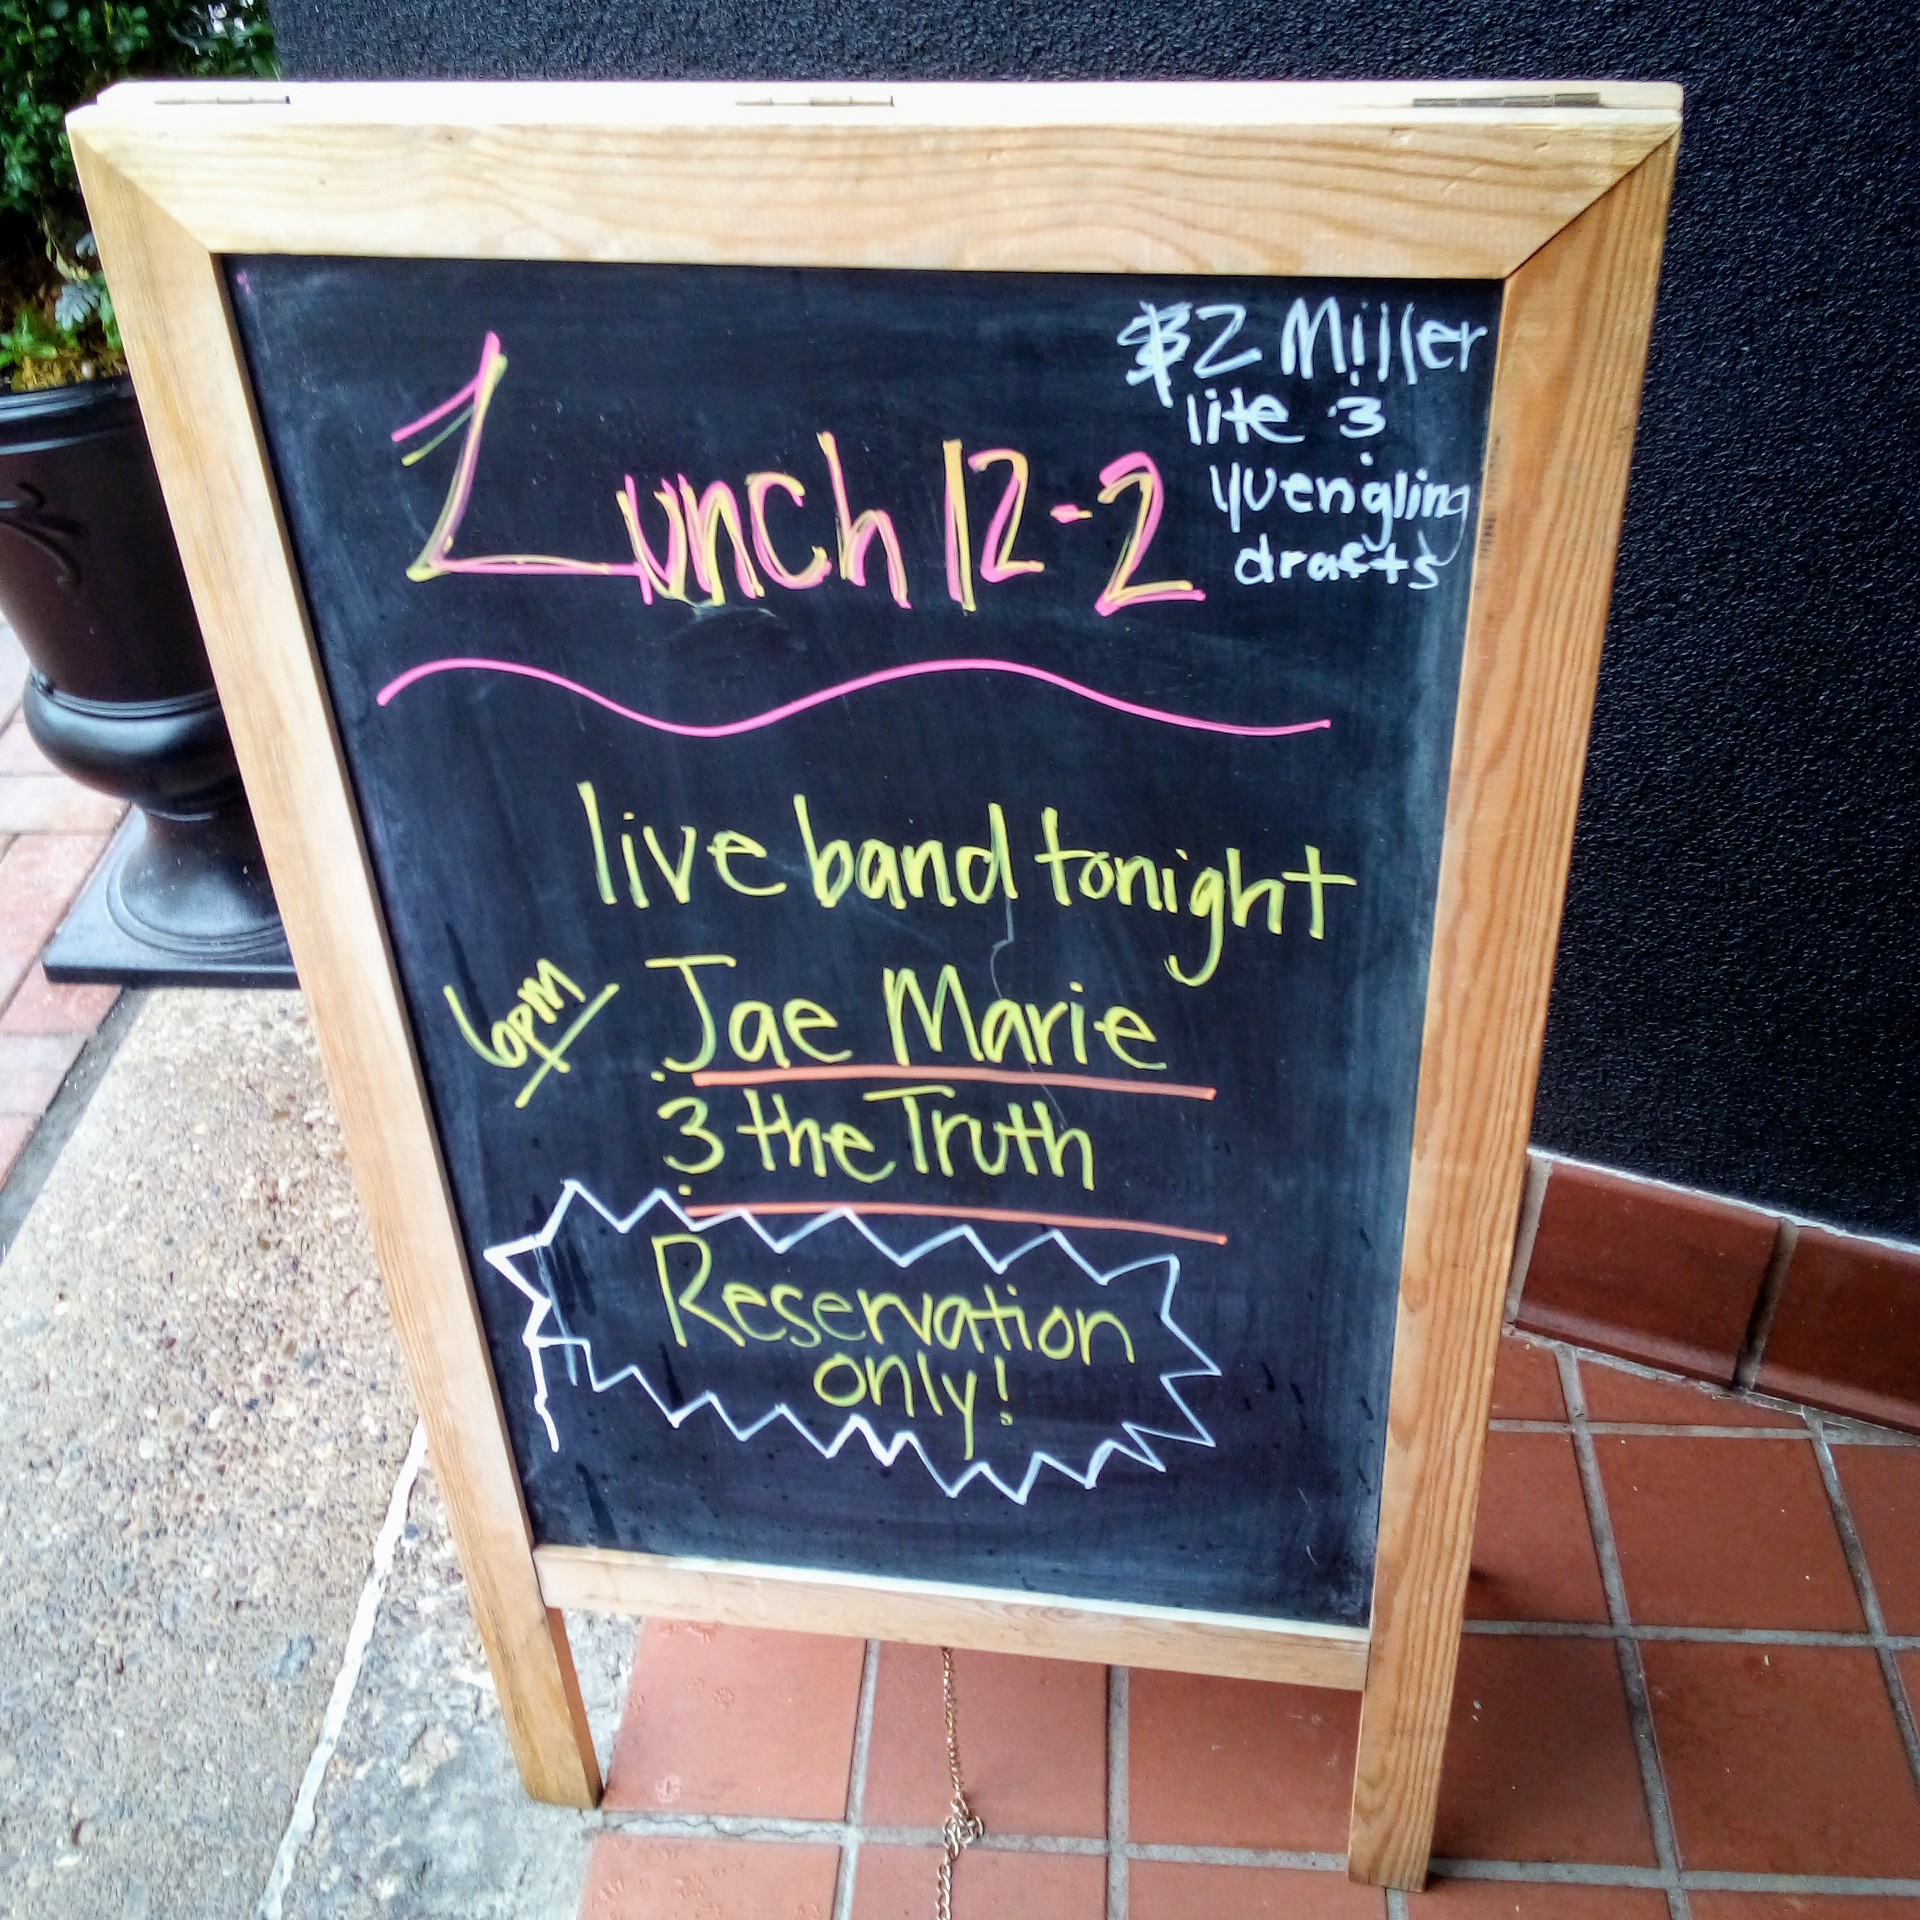 $2 Miller
lite &
yuengling
drafts
Lunch 12-2
live band tonight
6pm
Jae Marie
& the Truth
Reservation
only!